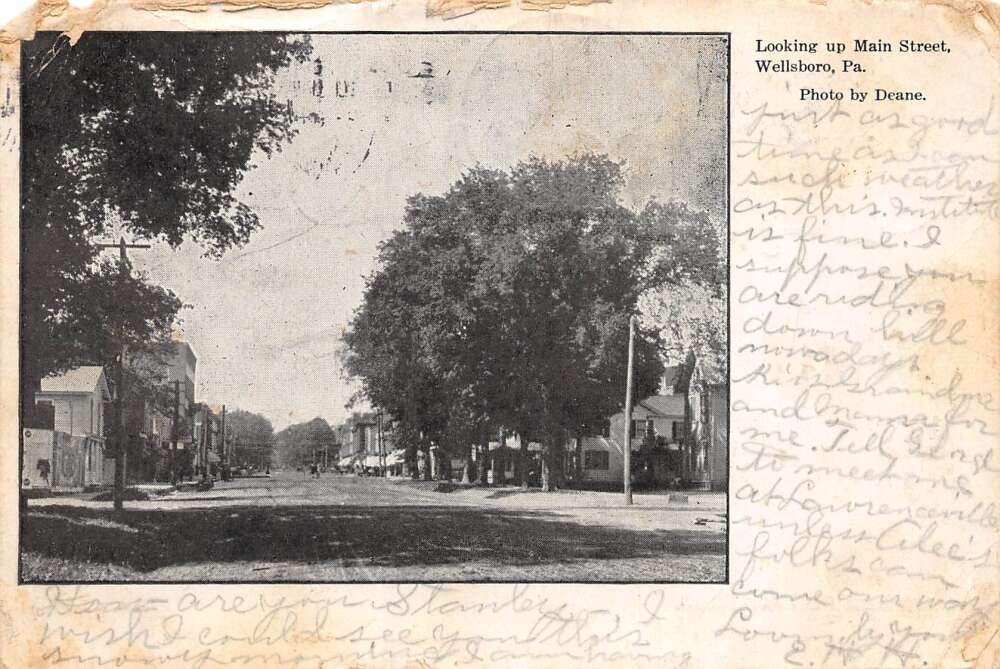 Looking up Main Street,
Wellsboro, Pa.
Photo by Deane.
How are you Stanley I
wish I could see you this
snowy morning I am having
just as good
time as I can
such weather
as this. Institute
is fine. I
suppose you
are riding
down hill
nowadays
Kiss Grandpa
and Mama for
me. Tell George
to meet me
at Lawrenceville
unless Alec's
folks can
come our way
Lovingly Yours
E. H.